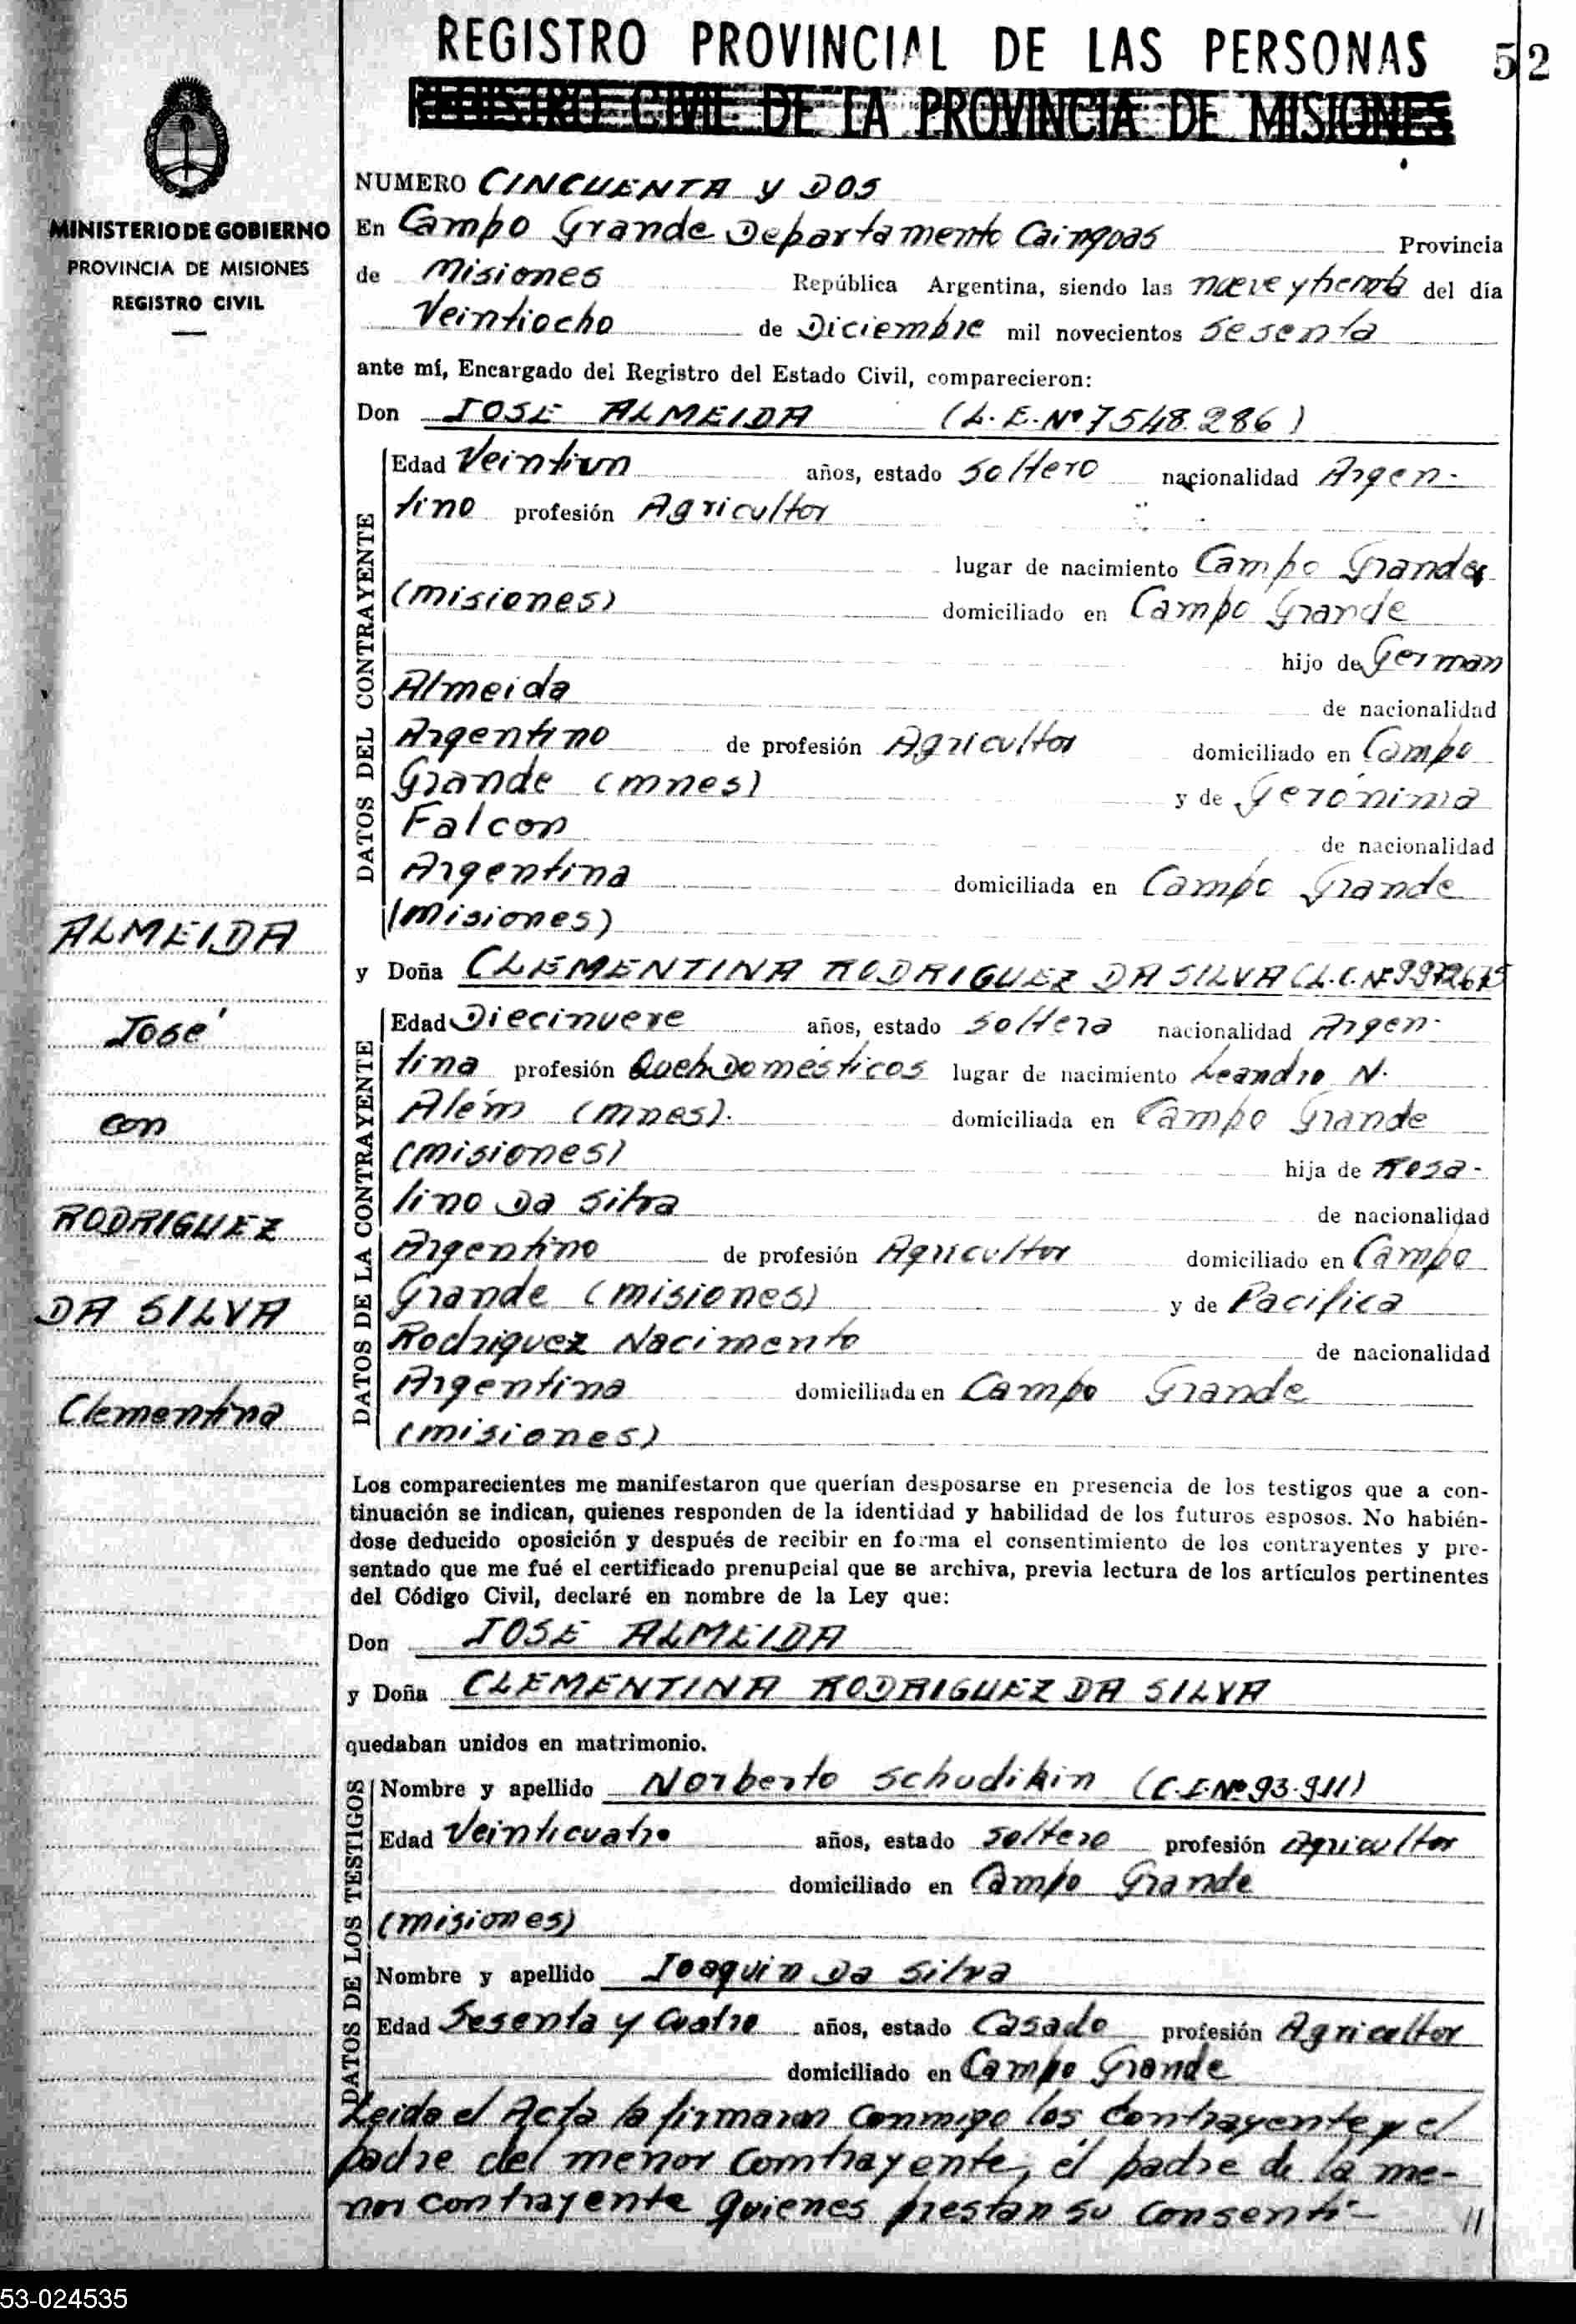 REGISTRO PROVINCIAL DE LAS PERSONAS 52
REGISTRO CIVIL DE LA PROVINCIA DE MISIONES
MINISTERIO DE GOBIERNO
PROVINCIA DE MISIONES
REGISTRO CIVIL
NUMERO CINCUENTA y DOS
En Campo Grande Departamento Caingoas Provincia
de Misiones República Argentina, siendo las nueve y treinta del día
Veintiocho de Diciembre mil novecientos Sesenta
ante mí, Encargado del Registro del Estado Civil, comparecieron:
Don JOSE ALMEIDA (L.E.Nº 7548.286)
DATOS DEL CONTRAYENTE
Edad Veintiun años, estado Soltero nacionalidad Argen-
tino profesión Agricultor
lugar de nacimiento Campo Grande
(misiones) domiciliado en Campo Grande
hijo de German
Almeida de nacionalidad
Argentino de profesión Agricultor domiciliado en Campo
Grande (mnes) y de Gerónima
Falcon de nacionalidad
Argentina domiciliada en Campo Grande
(misiones)
ALMEIDA
José
con
RODRIGUEZ
DA SILVA
Clementina
y Doña CLEMENTINA RODRIGUEZ DA SILVA (L.C.Nº
DATOS DE LA CONTRAYENTE
Edad Diecinueve años, estado Soltera nacionalidad Argen-
tina profesión Queh Domésticos lugar de nacimiento Leandro N.
Além (mnes). domiciliada en Campo Grande
(misiones) hija de Rosa-
lino Da Silva de nacionalidad
Argentino de profesión Agricultor domiciliado en Campo
Grande (misiones) y de Pacifica
Rodriguez Nacimento de nacionalidad
Argentina domiciliada en Campo Grande
(misiones)
Los comparecientes me manifestaron que querían desposarse en presencia de los testigos que a con-
tinuación se indican, quienes responden de la identidad y habilidad de los futuros esposos. No habién-
dose deducido oposición y después de recibir en forma el consentimiento de los contrayentes y pre-
sentado que me fué el certificado prenupcial que se archiva, previa lectura de los artículos pertinentes
del Código Civil, declaré en nombre de la Ley que:
Don JOSE ALMEIDA
y Doña CLEMENTINA RODRIGUEZ DA SILVA
quedaban unidos en matrimonio.
DATOS DE LOS TESTIGOS
Nombre y apellido Norberto Schudikin (C.I.Nº 93.911)
Edad Veinticuatro años, estado Soltero profesión Agricultor
domiciliado en Campo Grande
(misiones)
Nombre y apellido Joaquin Da Silva
Edad Sesenta y Cuatro años, estado Casado profesión Agricultor
domiciliado en Campo Grande
Leida el Acta la firmaron conmigo los contrayente y el
padre del menor contrayente, el padre de la me-
nor contrayente quienes prestan su consenti- //
53-024535